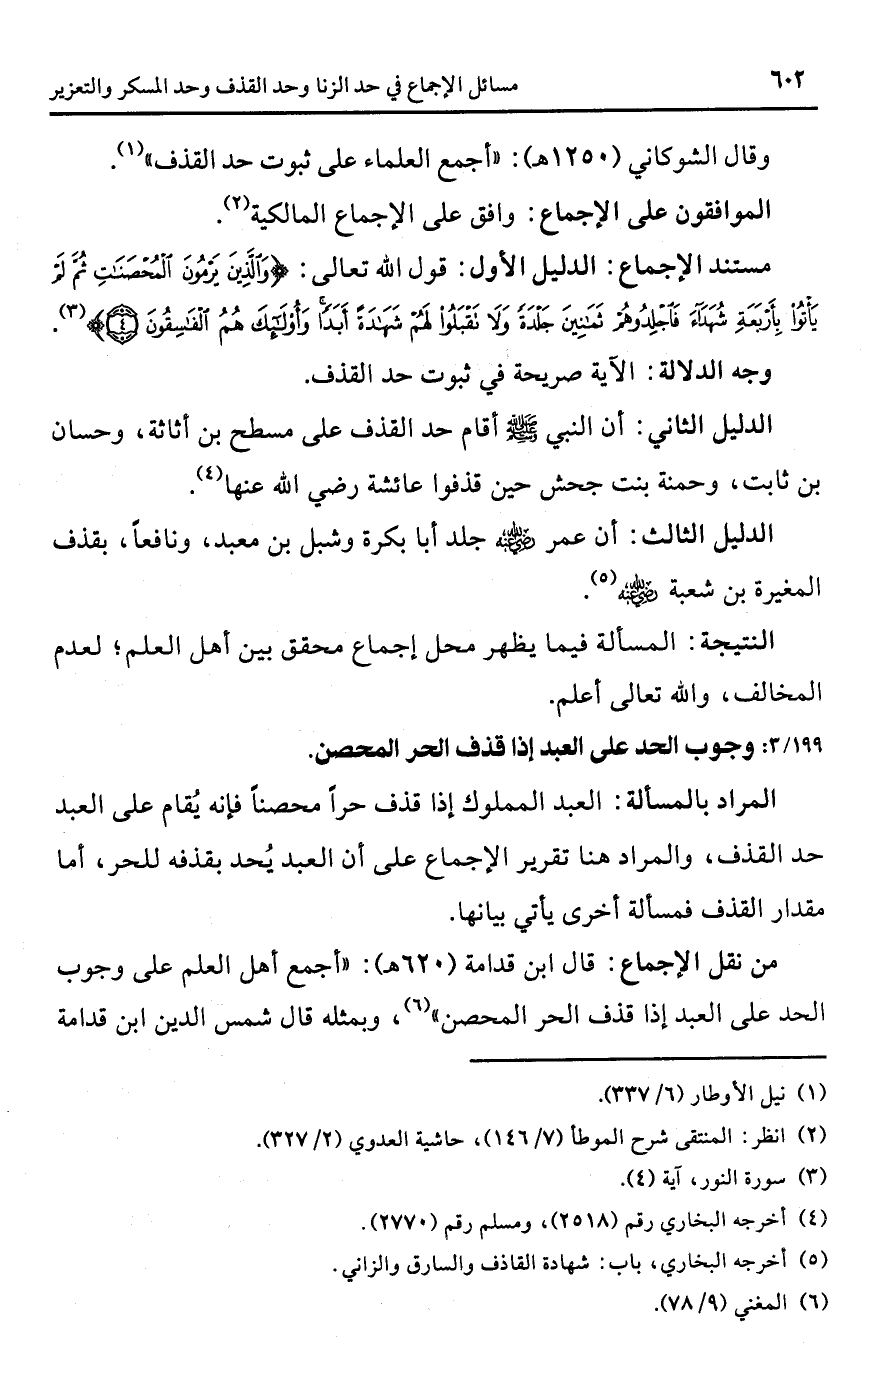 ٦٠٢
مسائل الإجماع في حد الزنا وحد القذف وحد المسكر والتعزير
وقال الشوكاني (١٢٥٠هـ): «أجمع العلماء على ثبوت حد القذف»(١).
الموافقون على الإجماع: وافق على الإجماع المالكية(٢).
مستند الإجماع: الدليل الأول: قول الله تعالى: ﴿وَالَّذِينَ يَرْمُونَ الْمُحْصَنَاتِ ثُمَّ لَمْ
يَأْتُوا بِأَرْبَعَةِ شُهَدَاءَ فَاجْلِدُوهُمْ ثَمَانِينَ جَلْدَةً وَلَا تَقْبَلُوا لَهُمْ شَهَادَةً أَبَدًا وَأُولَئِكَ هُمُ الْفَاسِقُونَ ٤﴾(٣).
وجه الدلالة: الآية صريحة في ثبوت حد القذف.
الدليل الثاني: أن النبي ﷺ أقام حد القذف على مسطح بن أثاثة، وحسان
بن ثابت، وحمنة بنت جحش حين قذفوا عائشة رضي الله عنها(٤).
الدليل الثالث: أن عمر رضي الله عنه جلد أبا بكرة وشبل بن معبد، ونافعاً، بقذف
المغيرة بن شعبة رضي الله عنه(٥).
النتيجة: المسألة فيما يظهر محل إجماع محقق بين أهل العلم؛ لعدم
المخالف، والله تعالى أعلم.
٣/١٩٩: وجوب الحد على العبد إذا قذف الحر المحصن.
المراد بالمسألة: العبد المملوك إذا قذف حراً محصناً فإنه يُقام على العبد
حد القذف، والمراد هنا تقرير الإجماع على أن العبد يُحد بقذفه للحر، أما
مقدار القذف فمسألة أخرى يأتي بيانها.
من نقل الإجماع: قال ابن قدامة (٦٢٠هـ): «أجمع أهل العلم على وجوب
الحد على العبد إذا قذف الحر المحصن»(٦)، وبمثله قال شمس الدين ابن قدامة
(١) نيل الأوطار (٦/ ٣٣٧).
(٢) انظر: المنتقى شرح الموطأ (٧/ ١٤٦)، حاشية العدوي (٢/ ٣٢٧).
(٣) سورة النور، آية (٤).
(٤) أخرجه البخاري رقم (٢٥١٨)، ومسلم رقم (٢٧٧٠).
(٥) أخرجه البخاري، باب: شهادة القاذف والسارق والزاني.
(٦) المغني (٩/ ٧٨).